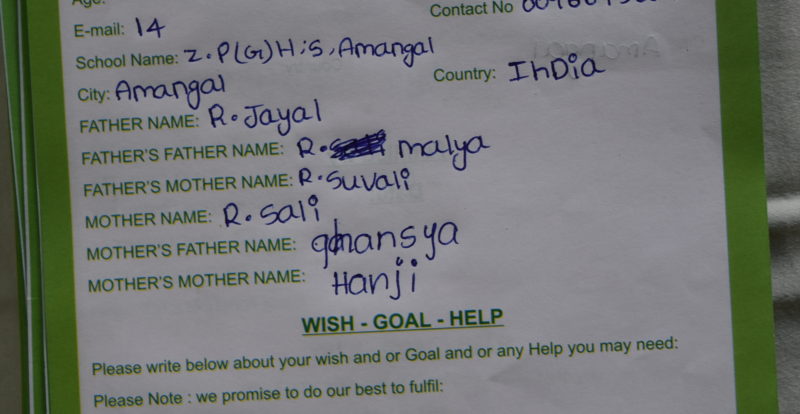 Age:
Contact No
E-mail: 14
School Name: Z.P(G)H.S, Amangal
City: Amangal
Country: InDia
FATHER NAME: R. Jayal
FATHER'S FATHER NAME: R. malya
FATHER'S MOTHER NAME: R. Suvali
MOTHER NAME: R. Sali
MOTHER'S FATHER NAME:
MOTHER'S MOTHER NAME: Hanji
WISH - GOAL - HELP
Please write below about your wish and or Goal and or any Help you may need:
Please Note : we promise to do our best to fulfil: